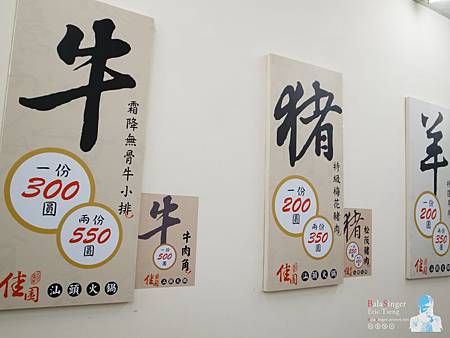 牛
霜降無骨牛小排
一份
300
圓
兩份
550
圓
佳園
汕頭火鍋
牛
牛肉角
一份
500
圓
佳園
汕頭火鍋
猪
特級梅花豬肉
一份
200
圓
兩份
350
圓
佳園
汕頭火鍋
猪
松阪豬肉
一份
佳園
汕頭火鍋
羊
一份
200
圓
兩份
350
圓
佳園
汕頭火鍋
BalaSinger
Eric Tseng